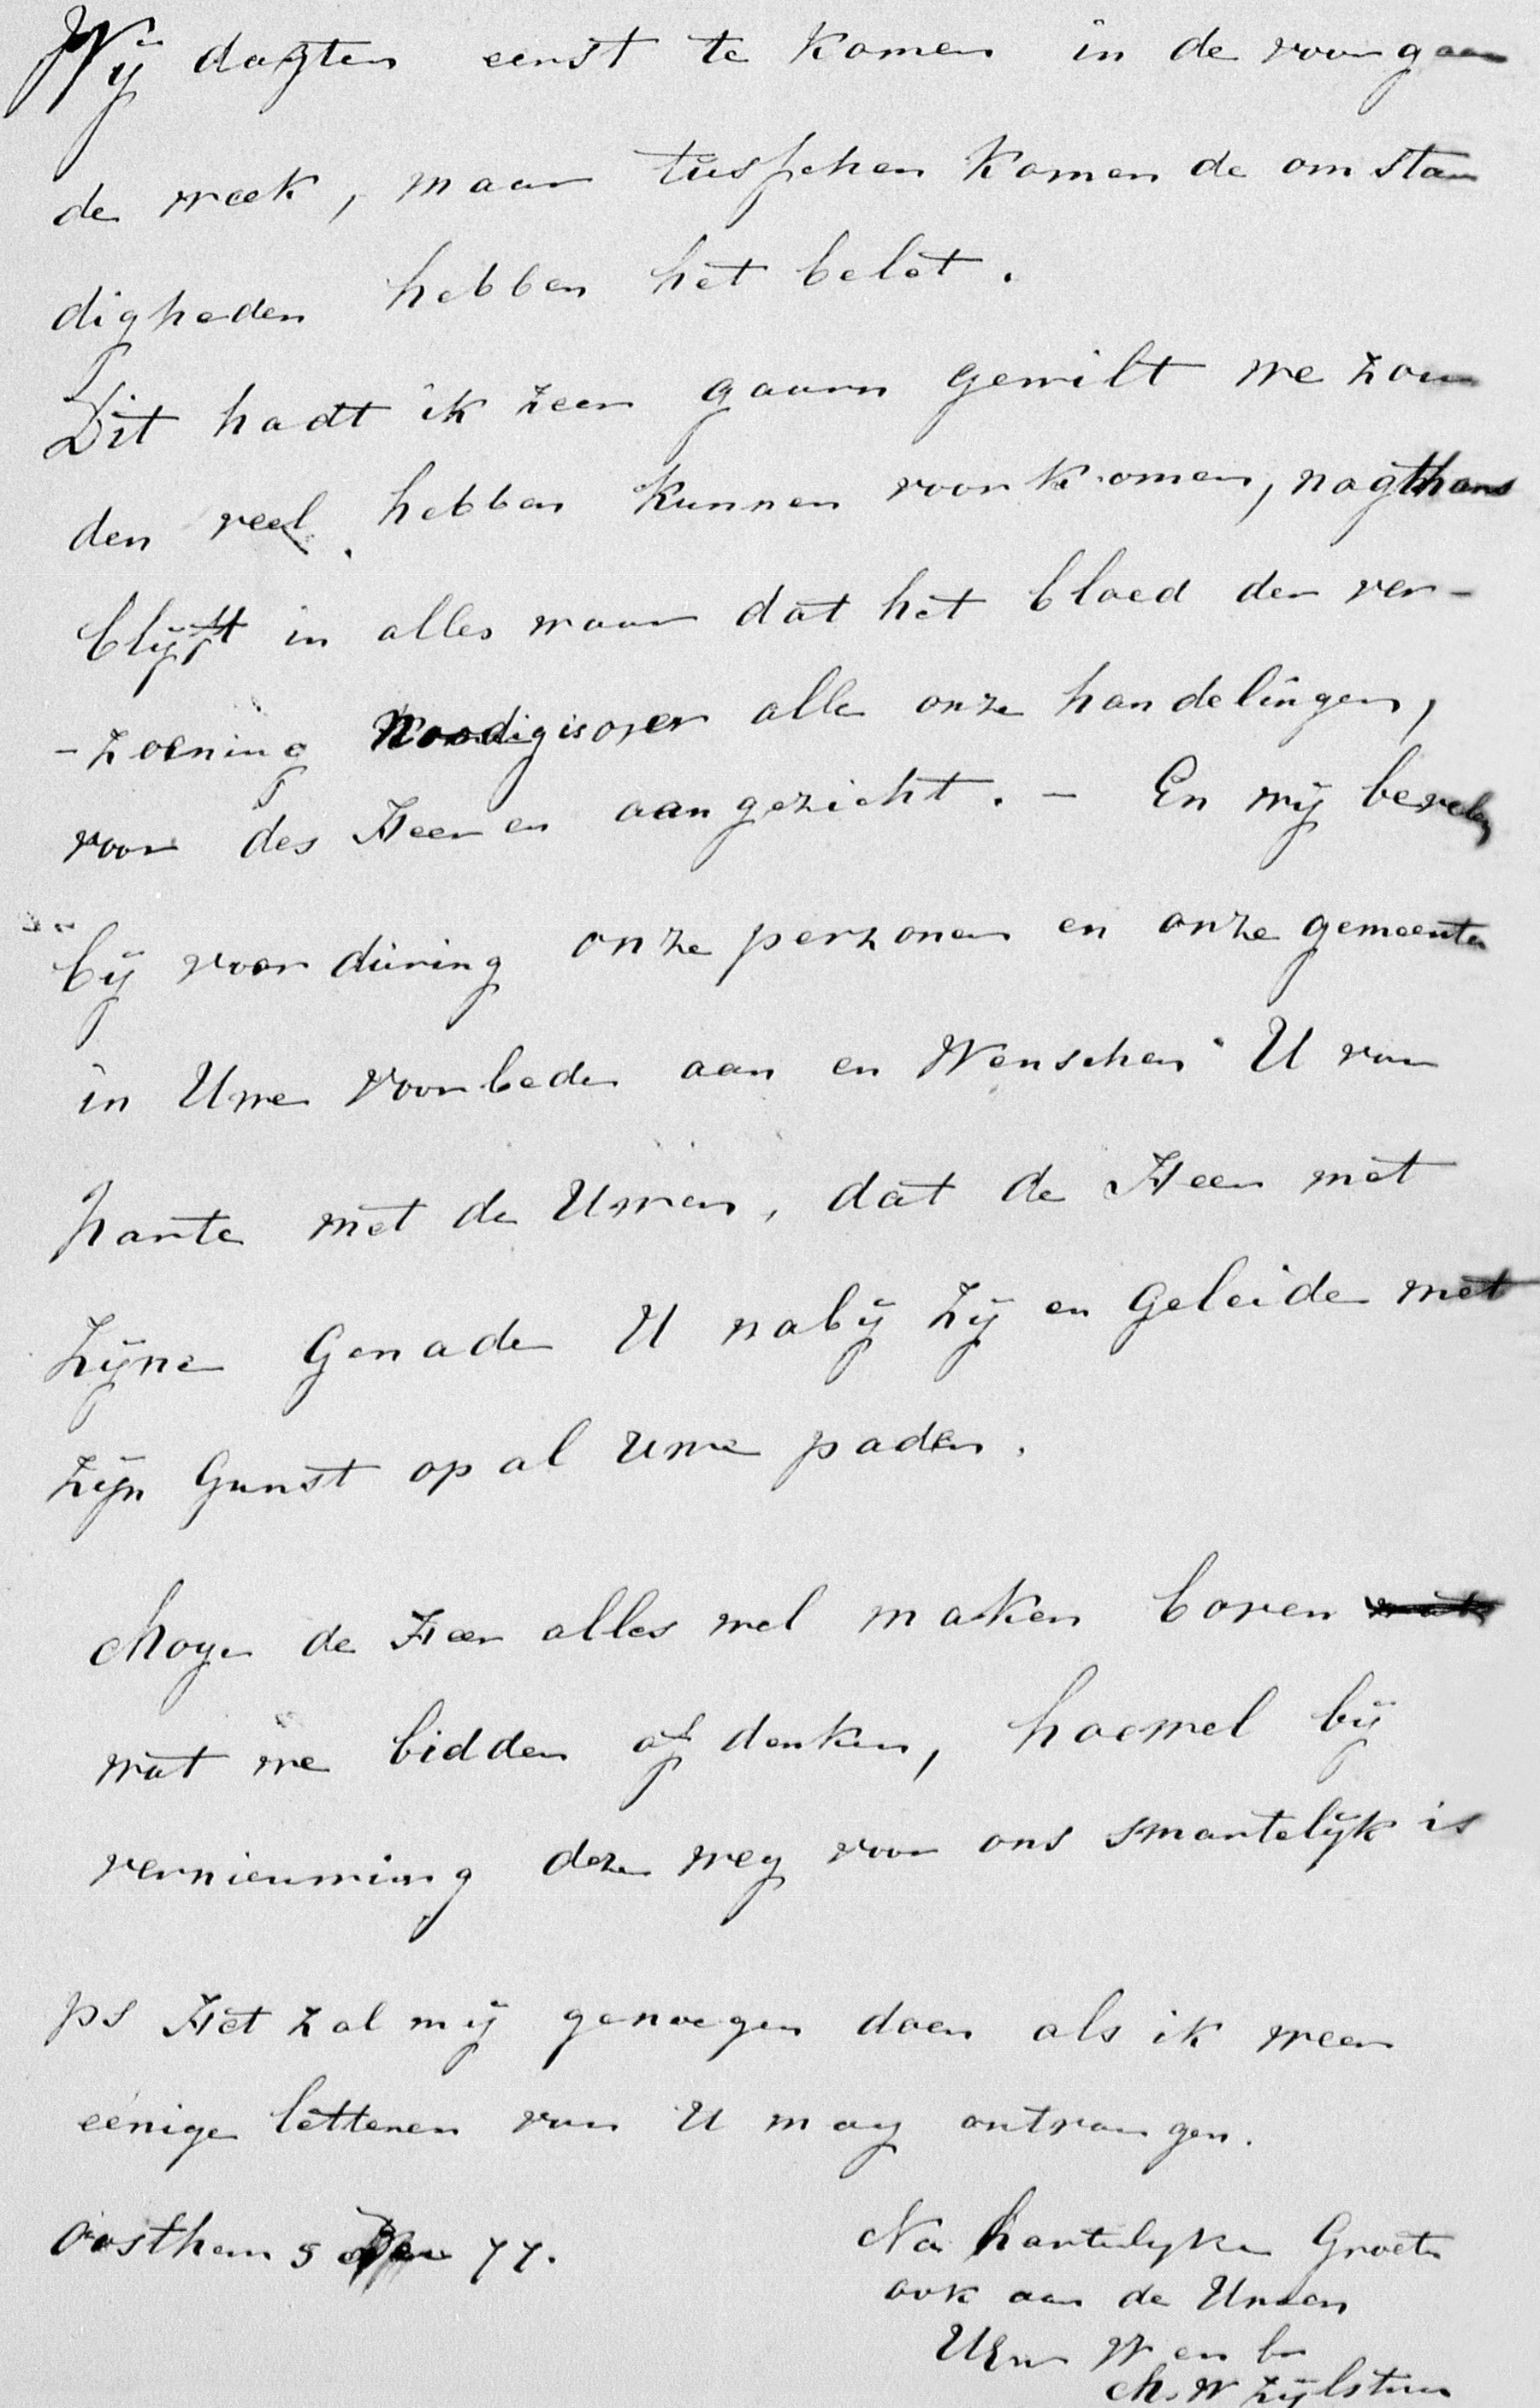 Wij dagten eerst te komen in de voorgaan
de week, maar tusschen komen de omstan
digheden hebben het belet.
Dit hadt ik zeer gaarn gewilt we zou
den veel hebben kunnen voorkomen, nogthans
blijft in alles waar dat het bloed der ver-
-zoening Noodig is over alle onze handelingen,
voor des Heeren aangezicht. - En wij bevelen
bij voorduring onze perzonen en onze gemeente
in Uwe voorbeden aan en Wenschen U van
harte met de Uwen, dat de Heer met
Zijne Genade U nabij Zij en Geleide met
Zijn Gunst op al Uwe paden.
Moge de Heer alles wel maken boven
wat we bidden of denken, hoewel bij
vernieuwing deze weg voor ons smartelijk is
ps Het zal mij genoegen doen als ik weer
eenige letteren van U mag ontvangen.
Oosthem 5 77.
Na hartelyke Groete
ook aan de Uwen
UEw W en br
M. W Zijlstra